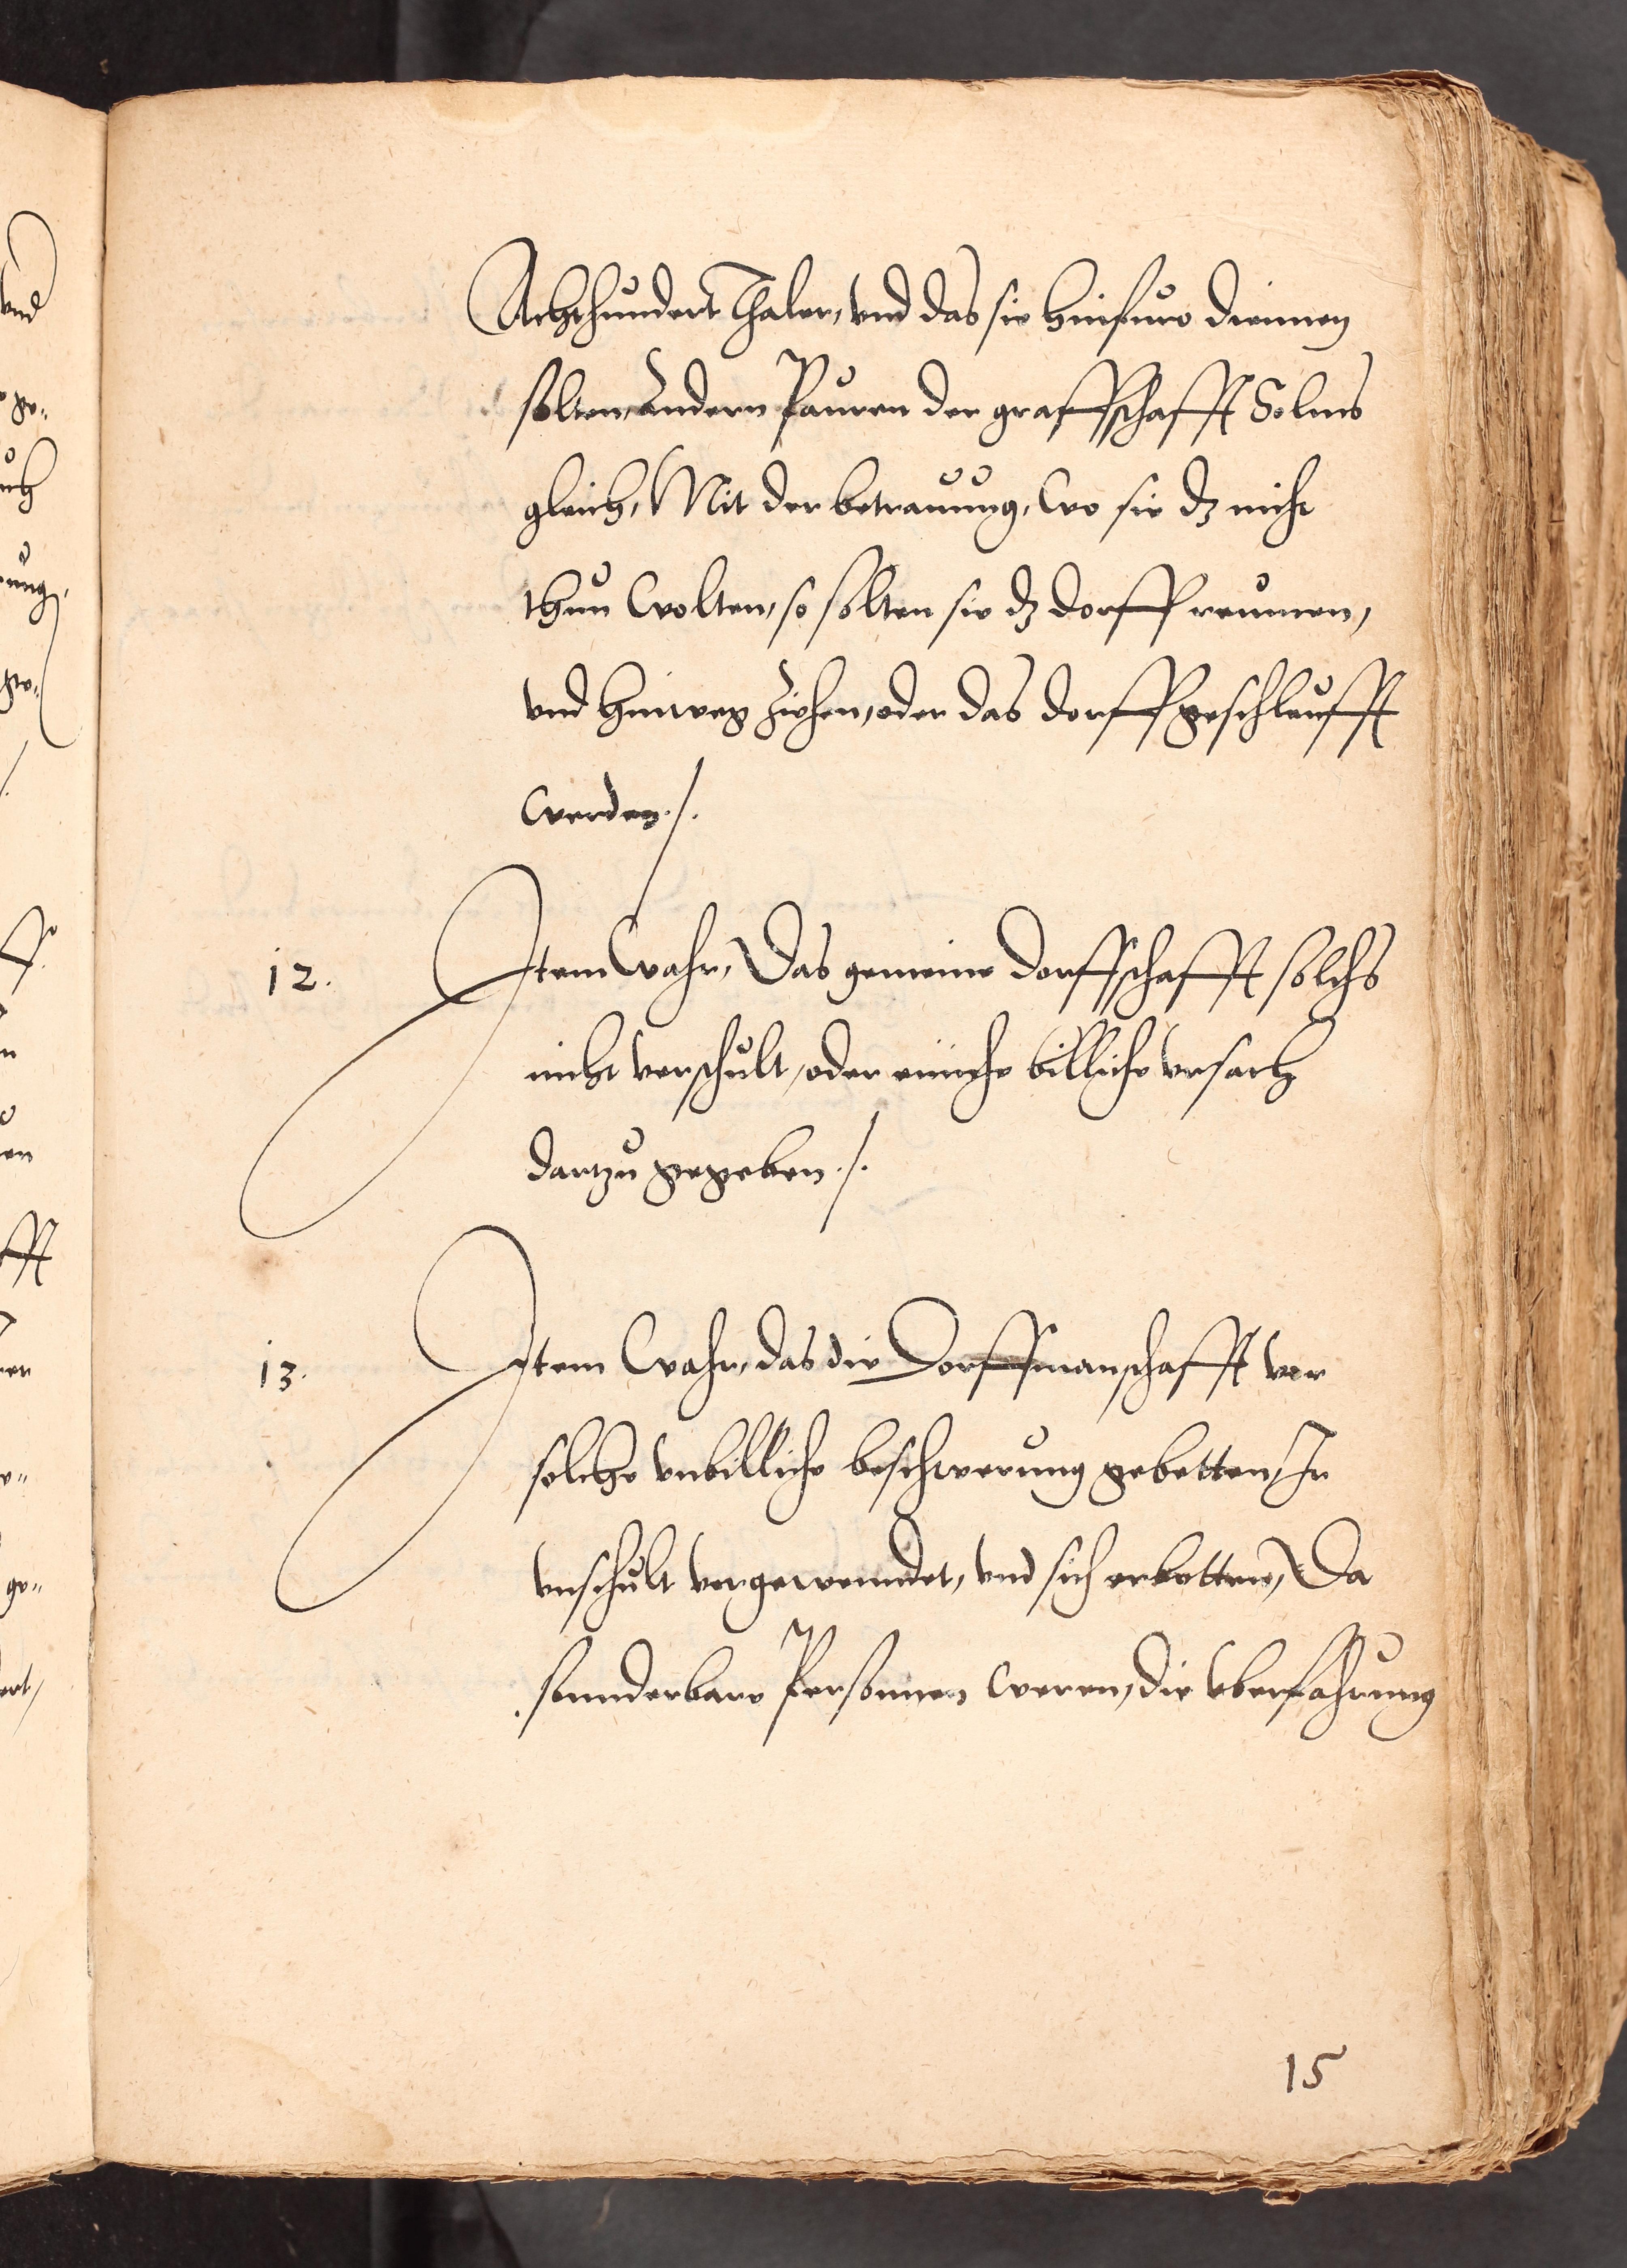 Achthundert Thaler, vnd das sie hinfuro diennen
solten, Andern Pauren der graffschafft Solms
gleich, Mit der betrauung, Wo sie dz nicht
thun Wolten, so solten sie dz dorff reumen,
vnd hinweg ziehen, oder das dorff geschleufft
Werden ./.
12. Item Wahr, Das gemeine dorffschafft solchs
nicht verschult, oder einiche billiche vrsach
dartzu gegeben ./.
13. Item Wahr, das die Dorffmanschafft vor
solche vnbilliche beschwerung gebetten, Ir
vnschult vorgewenndet, vnd sich erbotten, Da
sonnderbare Personnen Weren, die vberfahrung
15